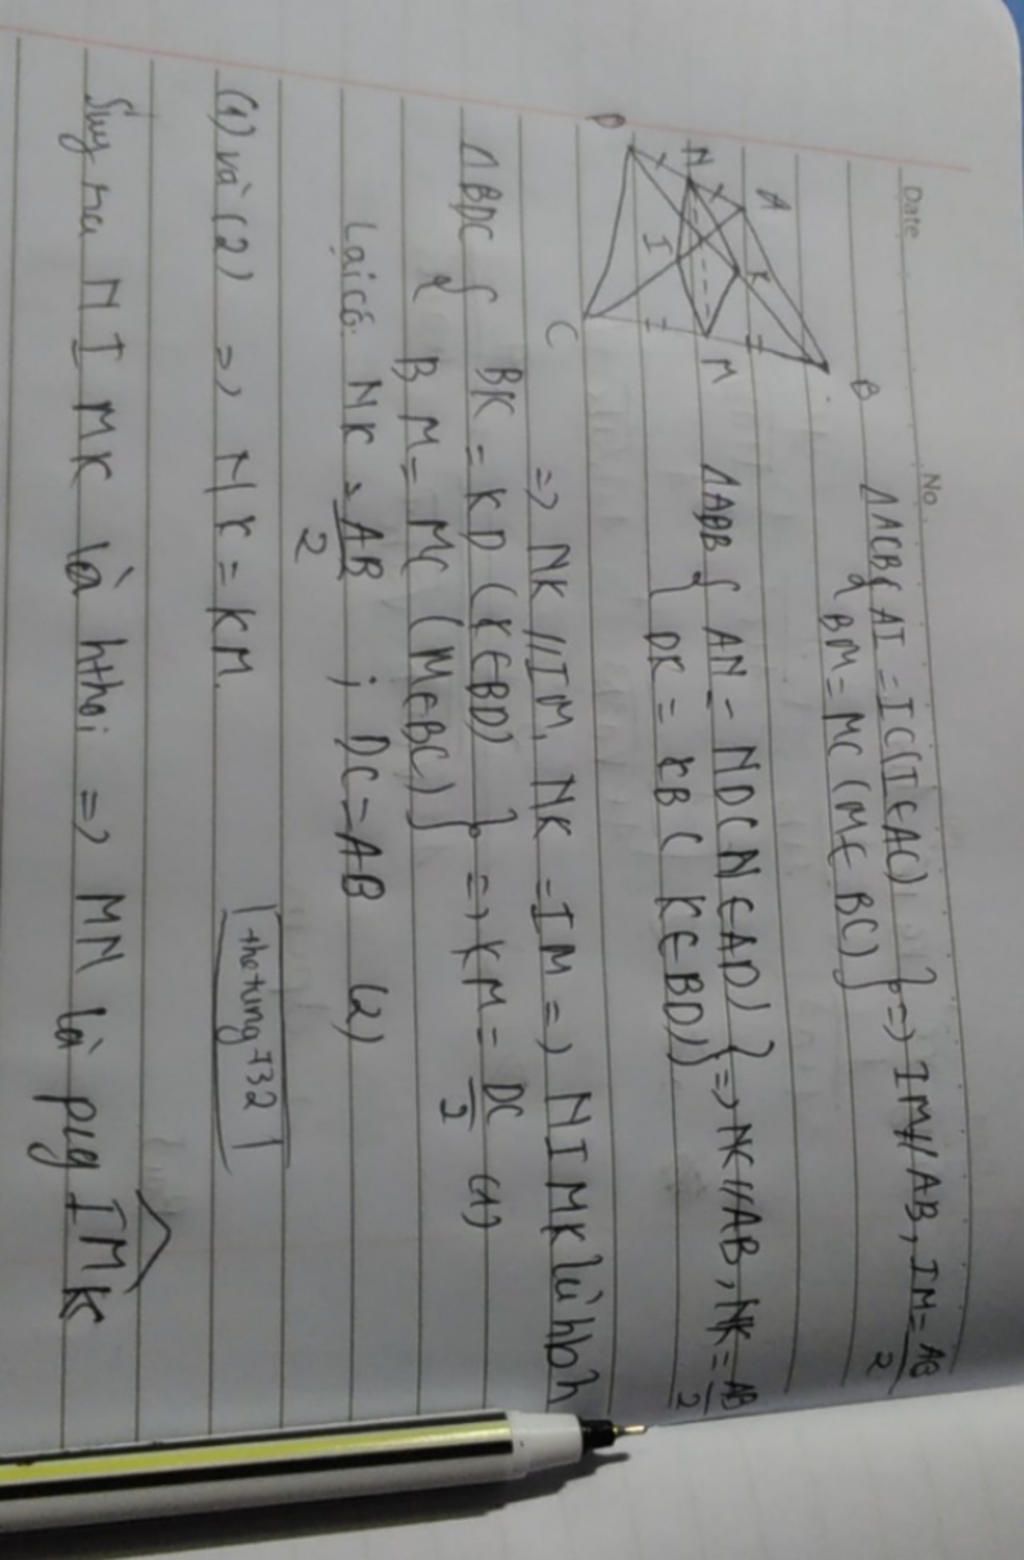 Date
No.
A
B
N
K
D
I
M
C
ΔACB { AI = IC (I ∈ AC)
& BM = MC (M ∈ BC) } => IM // AB, IM = AB/2
ΔABB { AN = ND (N ∈ AD)
DK = KB (K ∈ BD) } => NK // AB, NK = AB/2
=> NK // IM, NK = IM => NIMK là hbh
ΔBDC { BK = KD (K ∈ BD)
& BM = MC (M ∈ BC) } => KM = DC/2 (1)
Lại có: NK = AB/2 ; DC = AB (2)
(1) và (2) => NK = KM.
thotung7132
Suy ra NIMK là hthoi => MN là pvg IMK